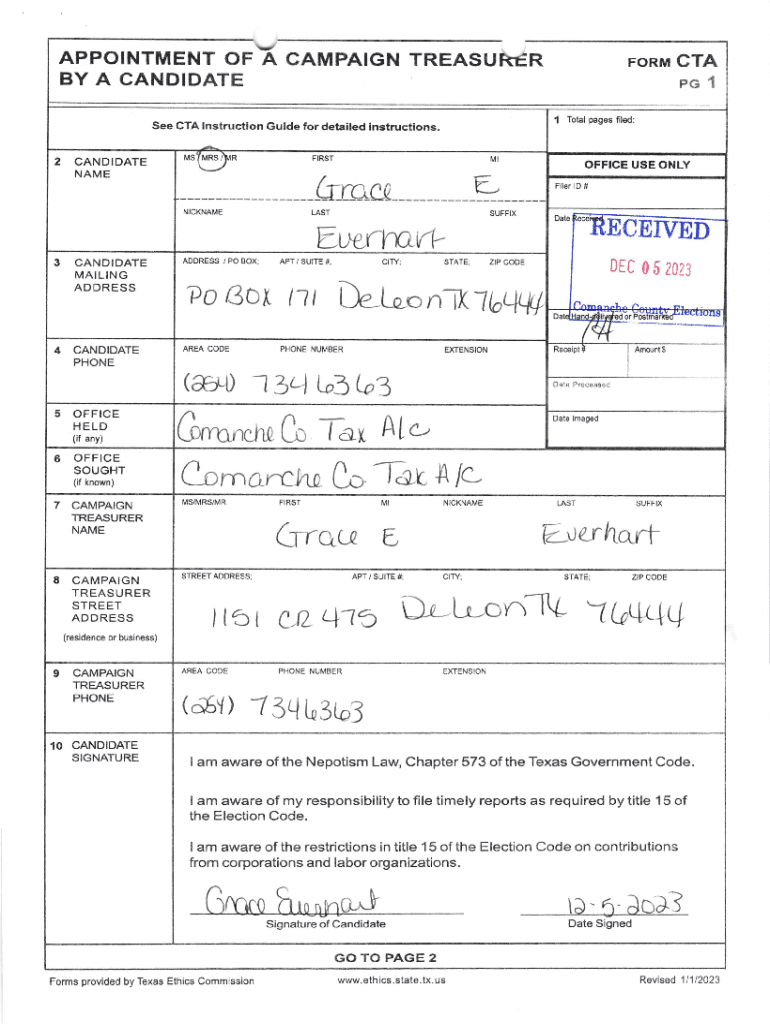 APPOINTMENT OF A CAMPAIGN TREASURER
BY A CANDIDATE
FORM CTA
PG 1
See CTA Instruction Guide for detailed instructions.
1 Total pages filed:
2 CANDIDATE NAME
MS / MRS / MR FIRST MI
Grace E
NICKNAME LAST SUFFIX
Everhart
OFFICE USE ONLY
Filer ID #
Date Received
RECEIVED
DEC 05 2023
Comanche County Elections
Date Hand-delivered or Postmarked
Receipt # Amount $
Date Processed
Date Imaged
3 CANDIDATE MAILING ADDRESS
ADDRESS / PO BOX; APT / SUITE #; CITY; STATE; ZIP CODE
PO BOX 171 DeLeon TX 76444
4 CANDIDATE PHONE
AREA CODE PHONE NUMBER EXTENSION
(254) 7346363
5 OFFICE HELD (if any)
Comanche Co. Tax A/C
6 OFFICE SOUGHT (if known)
Comanche Co. Tax A/C
7 CAMPAIGN TREASURER NAME
MS/MRS/MR FIRST MI NICKNAME LAST SUFFIX
Grace E Everhart
8 CAMPAIGN TREASURER STREET ADDRESS
(residence or business)
STREET ADDRESS; APT / SUITE #; CITY; STATE; ZIP CODE
1151 CR 475 DeLeon TX 76444
9 CAMPAIGN TREASURER PHONE
AREA CODE PHONE NUMBER EXTENSION
(254) 7346363
10 CANDIDATE SIGNATURE
I am aware of the Nepotism Law, Chapter 573 of the Texas Government Code.
I am aware of my responsibility to file timely reports as required by title 15 of
the Election Code.
I am aware of the restrictions in title 15 of the Election Code on contributions
from corporations and labor organizations.
Grace Everhart 12-5-2023
Signature of Candidate Date Signed
GO TO PAGE 2
Forms provided by Texas Ethics Commission www.ethics.state.tx.us Revised 1/1/2023